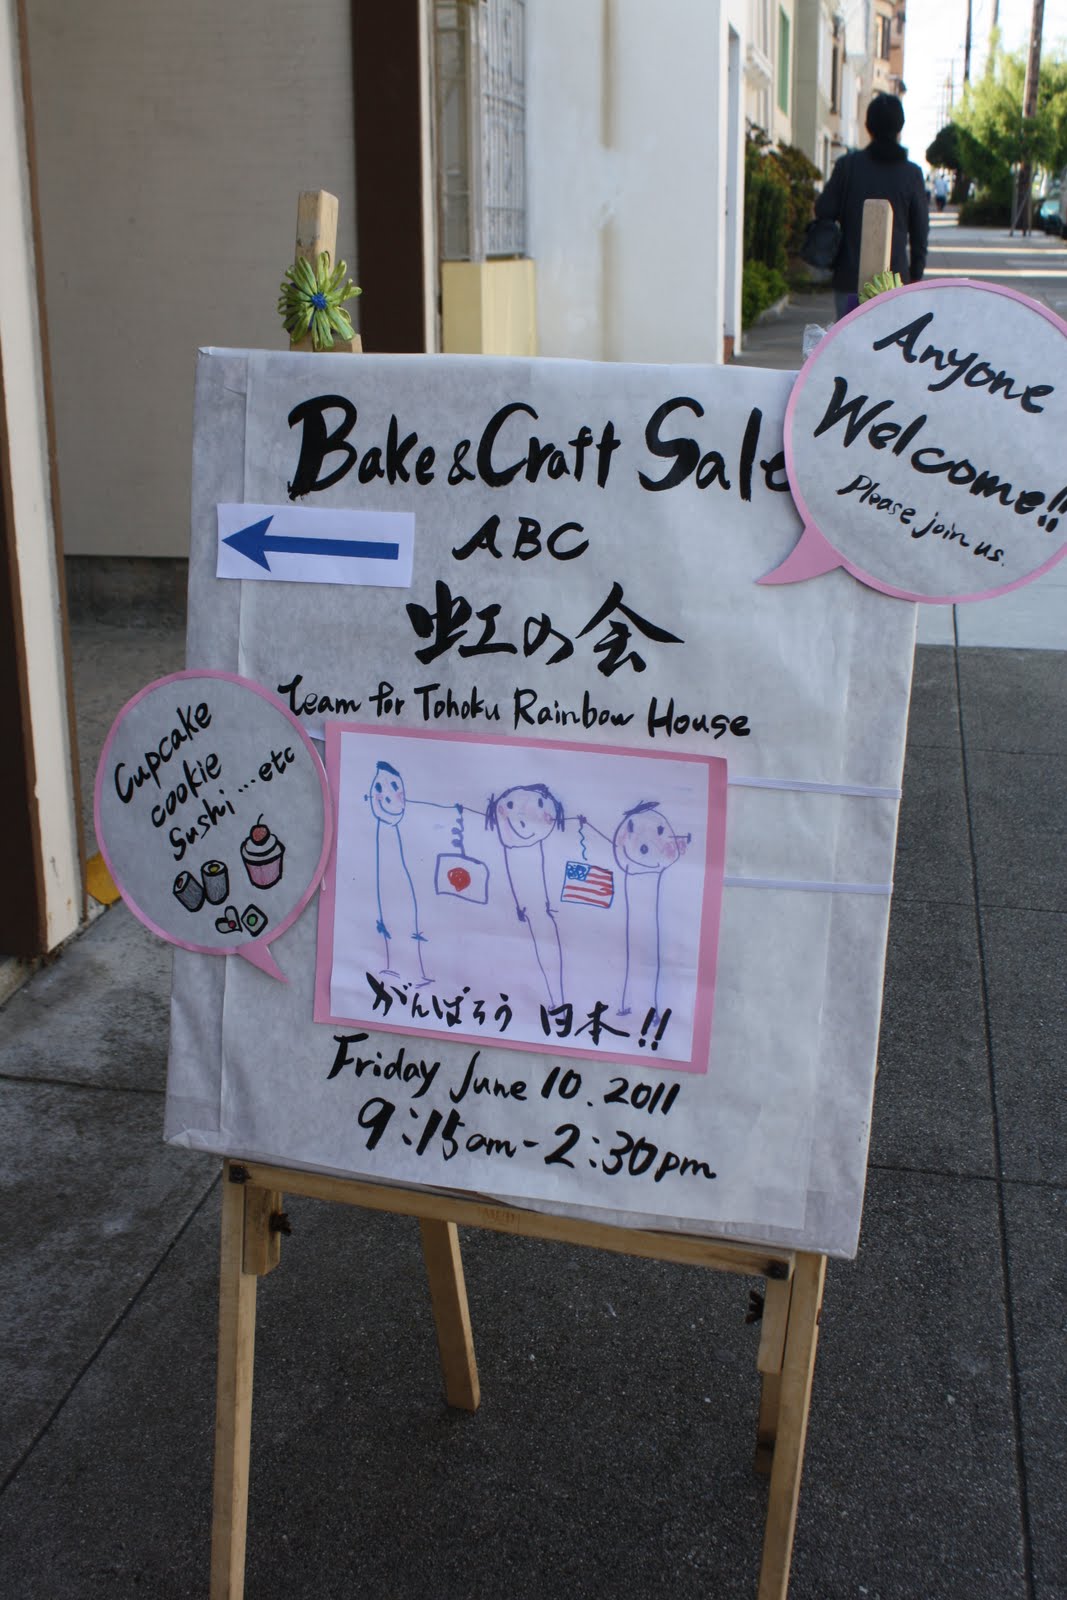 Bake & Craft Sale
ABC
虹の会
Team for Tohoku Rainbow House
Anyone
Welcome!!
Please join us.
Cupcake
cookie
Sushi...etc
がんばろう 日本!!
Friday June 10. 2011
9:15am-2:30pm